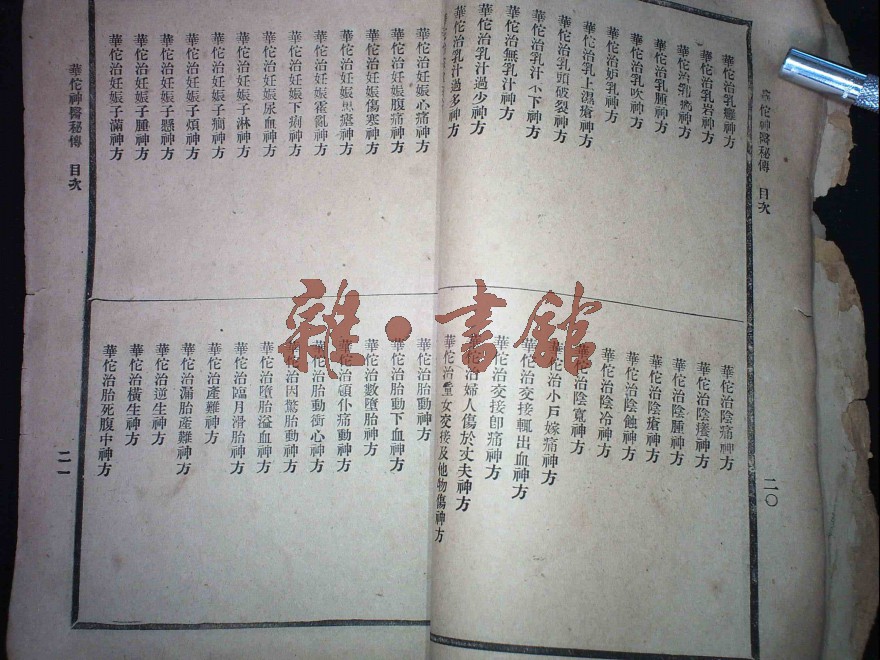 華佗神醫秘傳 目次
二〇
華佗治乳癰神方
華佗治乳岩神方
華佗治乳腫神方
華佗治乳吹神方
華佗治妬乳神方
華佗治乳上濕瘡神方
華佗治乳頭破裂神方
華佗治乳汁不下神方
華佗治無乳汁神方
華佗治乳汁過少神方
華佗治乳汁過多神方
華佗治陰痛神方
華佗治陰癢神方
華佗治陰腫神方
華佗治陰瘡神方
華佗治陰蝕神方
華佗治陰冷神方
華佗治陰寬神方
華佗治小戶嫁痛神方
華佗治交接輒出血神方
華佗治交接卽痛神方
華佗治婦人傷於丈夫神方
華佗治童女交接及他物傷神方
華佗治妊娠心痛神方
華佗治妊娠腹痛神方
華佗治妊娠傷寒神方
華佗治妊娠患瘧神方
華佗治妊娠霍亂神方
華佗治妊娠下痢神方
華佗治妊娠尿血神方
華佗治妊娠子淋神方
華佗治妊娠子癇神方
華佗治妊娠子煩神方
華佗治妊娠子懸神方
華佗治妊娠子腫神方
華佗治妊娠子滿神方
華佗治胎動神方
華佗治胎動下血神方
華佗治數墮胎神方
華佗治頓仆胎動神方
華佗治胎動衝心神方
華佗治因驚胎動神方
華佗治墮胎溢血神方
華佗治臨月滑胎神方
華佗治產難神方
華佗治漏胎產難神方
華佗治逆生神方
華佗治橫生神方
華佗治胎死腹中神方
華佗神醫秘傳 目次
二一
雜·書館